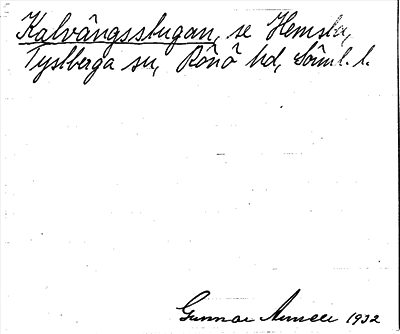 Kalvängsstugan, se Hemsta,
Tystberga sn, Rönö hd, Söml. l.
Gunnar 1932